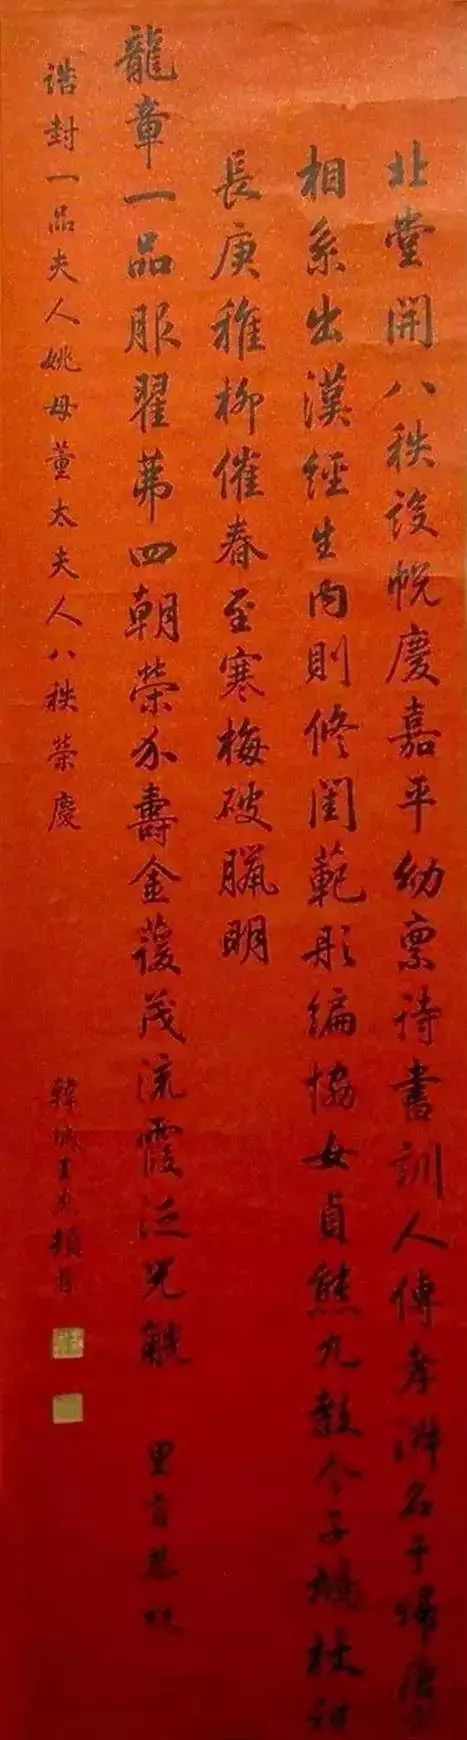 北堂開八秩設帨慶嘉平幼稟詩書訓人傳孝淑名于歸唐
相系出漢經生內則修閨範彤編協女貞熊丸教令子鳩杖祝
長庚稚柳催春至寒梅破臘明
龍章一品服翟茀四朝榮介壽金萱茂流霞泛兕觥 里言恭祝
誥封一品夫人姚母董太夫人八秩榮慶
韓城王杰頓首